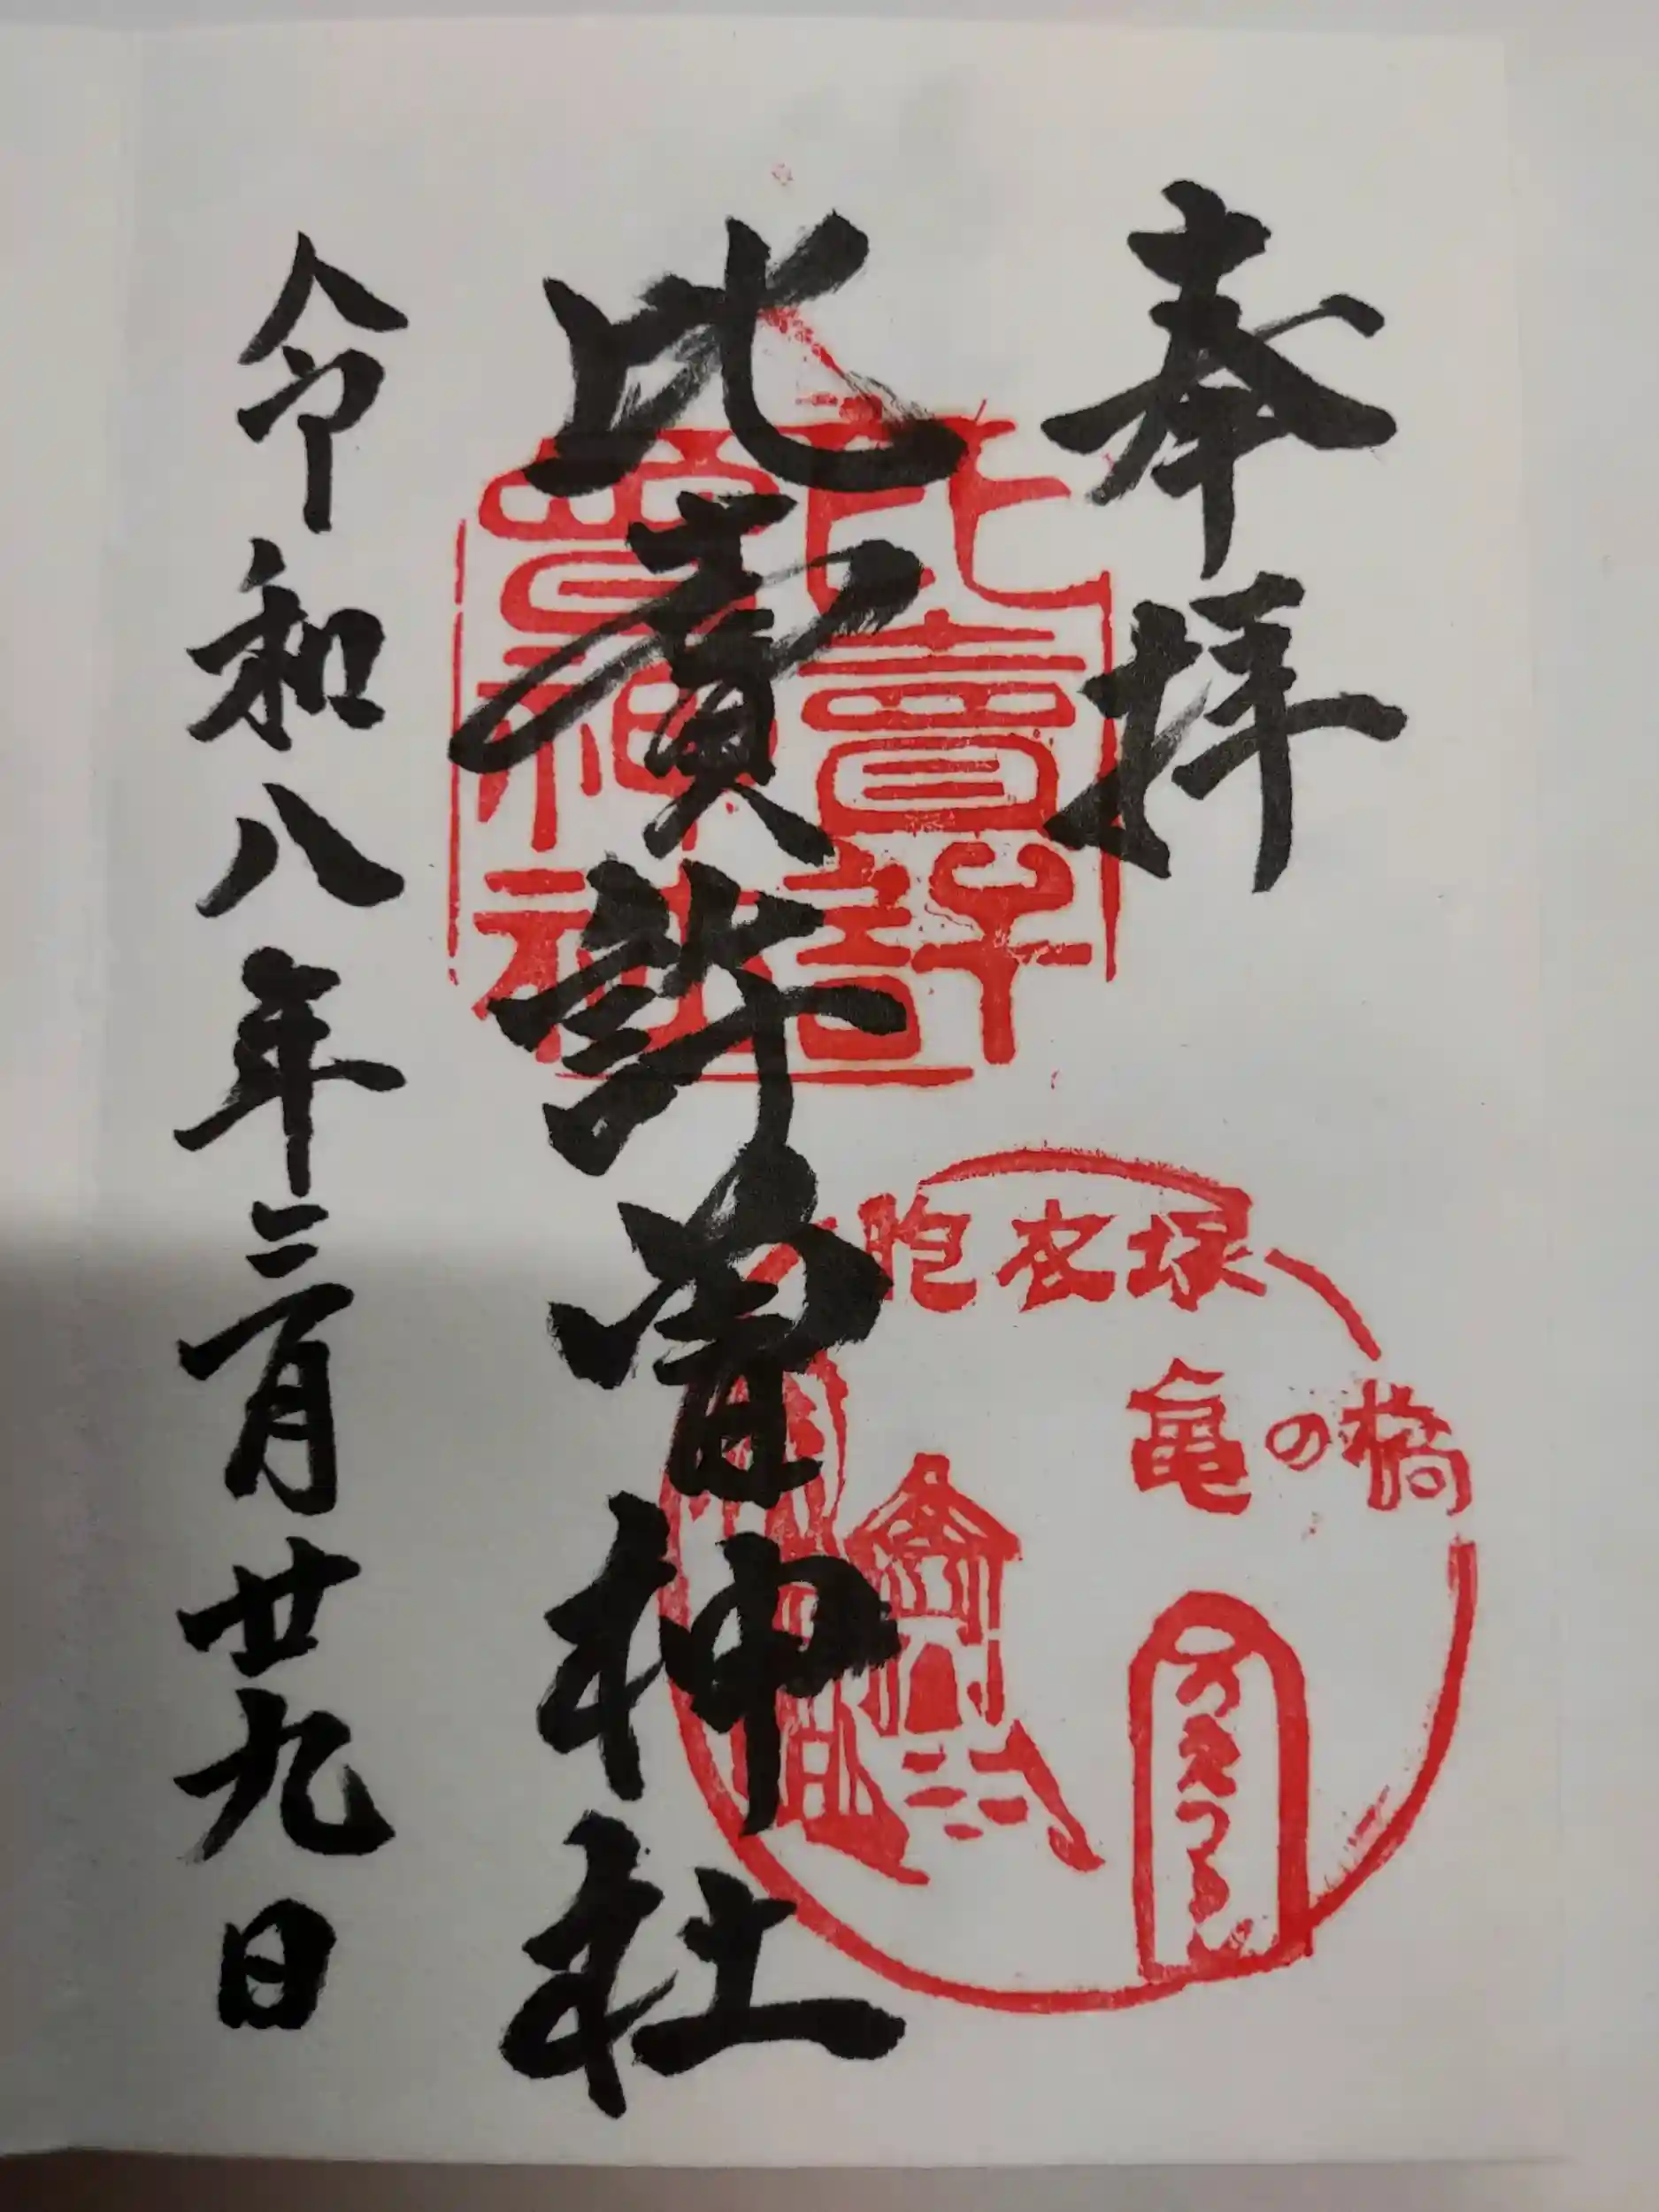 奉拝
比賣許曽神社
令和八年三月廿九日
比賣許
曽神社
胞衣塚
亀の橋